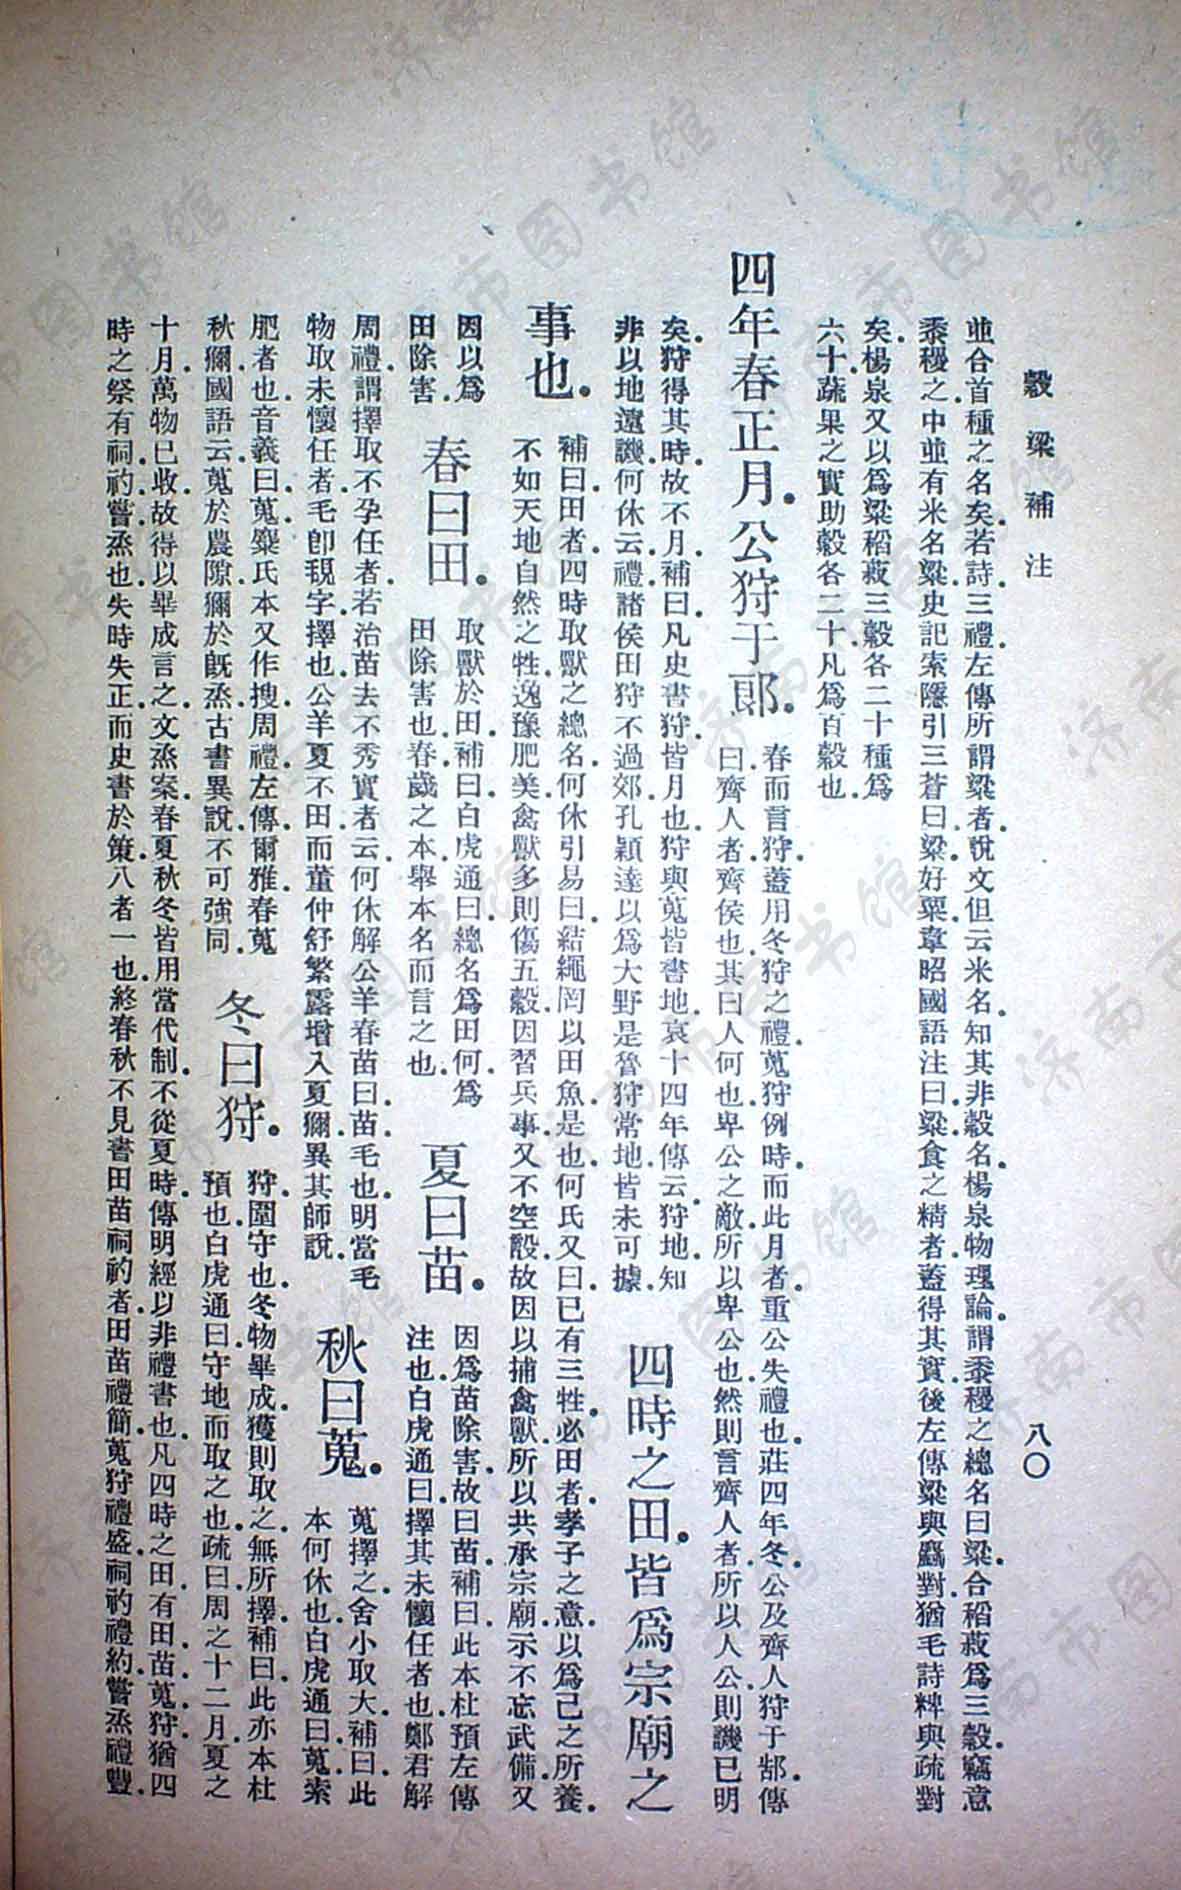 穀梁補注
八〇
並合首種之名矣若詩三禮左傳所謂粱者說文但云米名知其非穀名楊泉物理論謂黍稷之總名曰粱合稻菽爲三穀竊意
黍稷之中並有米名粱史記索隱引三蒼曰粱好粟韋昭國語注曰粱食之精者蓋得其實後左傳粱與麤對猶毛詩粺與疏對
矣楊泉又以爲粱稻菽三穀各二十種爲
六十蔬果之實助穀各二十凡爲百穀也
四年春正月公狩于郎
春而言狩蓋用冬狩之禮蒐狩例時而此月者重公失禮也莊四年冬公及齊人狩于郜傳
曰齊人者齊侯也其曰人何也卑公之敵所以卑公也然則言齊人者所以人公則譏已明
矣狩得其時故不月補曰凡史書狩皆月也狩與蒐皆書地哀十四年傳云狩地知
非以地遠譏何休云禮諸侯田狩不過郊孔穎達以爲大野是魯狩常地皆未可據
四時之田皆爲宗廟之
事也
補曰田者四時取獸之總名何休引易曰結繩罔以田魚是也何氏又曰已有三牲必田者孝子之意以爲己之所養
不如天地自然之牲逸豫肥美禽獸多則傷五穀因習兵事又不空設故因以捕禽獸所以共承宗廟示不忘武備又
因以爲
田除害
春曰田
取獸於田補曰白虎通曰總名爲田何爲
田除害也春歲之本舉本名而言之也
夏曰苗
因爲苗除害故曰苗補曰此本杜預左傳
注也白虎通曰擇其未懷任者也鄭君解
周禮謂擇取不孕任者若治苗去不秀實者云何休解公羊春苗曰苗毛也明當毛
物取未懷任者毛卽覒字擇也公羊夏不田而董仲舒繁露增入夏獮異其師說
秋曰蒐
蒐擇之舍小取大補曰此
本何休也白虎通曰蒐索
肥者也音義曰蒐糜氏本又作搜周禮左傳爾雅春蒐
秋獮國語云蒐於農隙獮於旣烝古書異說不可強同
冬曰狩
狩圍守也冬物畢成獲則取之無所擇補曰此亦本杜
預也白虎通曰守地而取之也疏曰周之十二月夏之
十月萬物已收故得以畢成言之文烝案春夏秋冬皆用當代制不從夏時傳明經以非禮書也凡四時之田有田苗蒐狩猶四
時之祭有祠礿嘗烝也失時失正而史書於策八者一也終春秋不見書田苗祠礿者田苗禮簡蒐狩禮盛祠礿禮約嘗烝禮豐